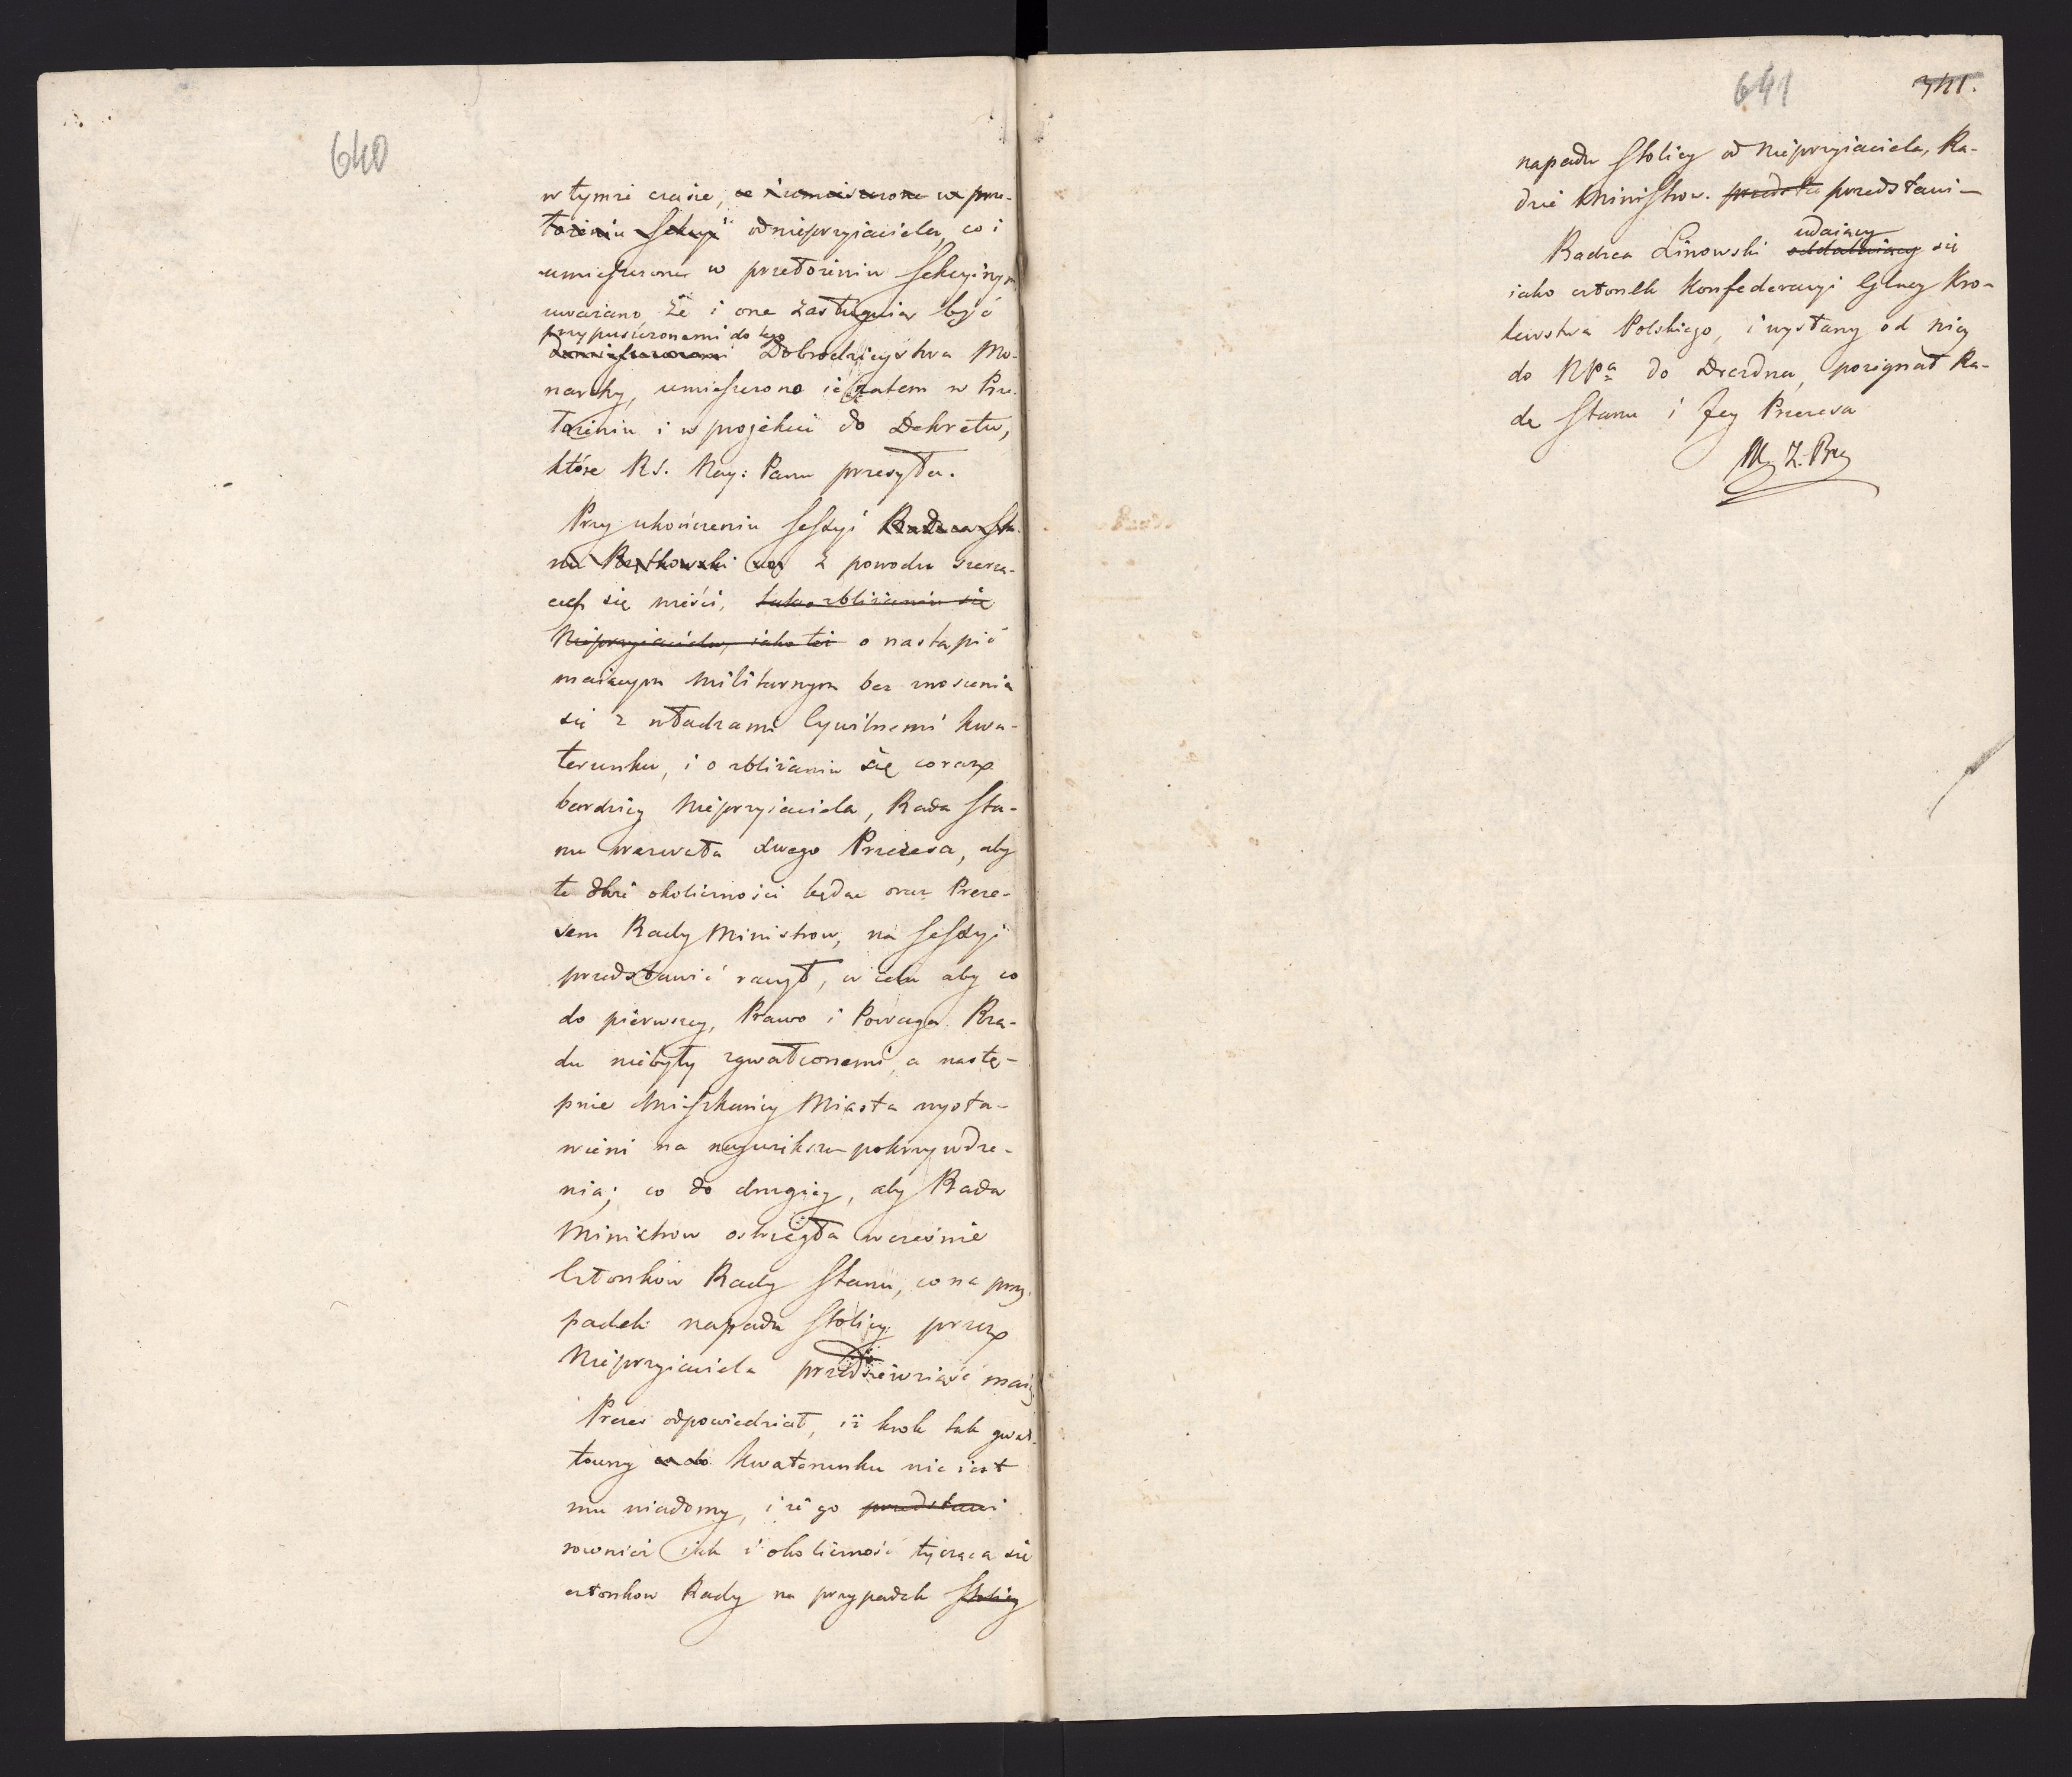 640
w tymże czasie, co i umieszczone w prze-
łożeniu Sekcyi od nieprzyiaciela, co i
umieszczone w przełożeniu Sekcyinym
uważano, że i one zasługuią być
przypuszczonemi do tego
Dobrodzieystwa Mo-
narchy, umieszczono ie zatem w Prze-
łożeniu i w projekcie do Dekretu,
które RS. Nay: Panu przesyła.
Przy ukończeniu Sessyi Radca Sta-
nu z powodu szerzą-
cey się wieści, tak o zbliżaniu się
Nieprzyjaciela, iako też o nastąpić
maiącym Militarnym bez znoszenia
się z władzami Cywilnemi kwa-
terunku, i o zbliżaniu się coraz
bardziey Nieprzyiaciela, Rada Sta-
nu wezwała swego Prezesa, aby
te dwie okoliczności będąc oraz Preze-
sem Rady Ministrow, na Sessyi
przedstawić raczył, w celu aby co
do pierwszey, Prawo i Powaga Rzą-
du niebyły zgwałconemi, a nastę-
pnie Mieszkańcy Miasta wysta-
wieni na naywiększe pokrzywdze-
nia; co do drugiey, aby Rada
Ministrow ostrzegła wcześnie
Członków Rady Stanu, co na przy-
padek napadu Stolicy przez
Nieprzyiaciela przedsięwziąść maią.
Prezes odpowiedział, iż krok tak gwał-
towny co do kwaterunku nie iest
mu wiadomy, i że go przedstawi
rownież iak i okoliczność tycząca się
członkow Rady na przypadek Stolicy
641
341.
napadu Stolicy od Nieprzyiaciela, Ra-
dzie Ministrow. przedsta przedstawi
udaiący
Radca Linowski oddalaiący się
iako członek Konfederacyi Glney Kro-
lewstwa Polskiego, i wysłany od niey
do NPa do Drezdna, pożegnał Ra-
dę Stanu i Jey Prezesa